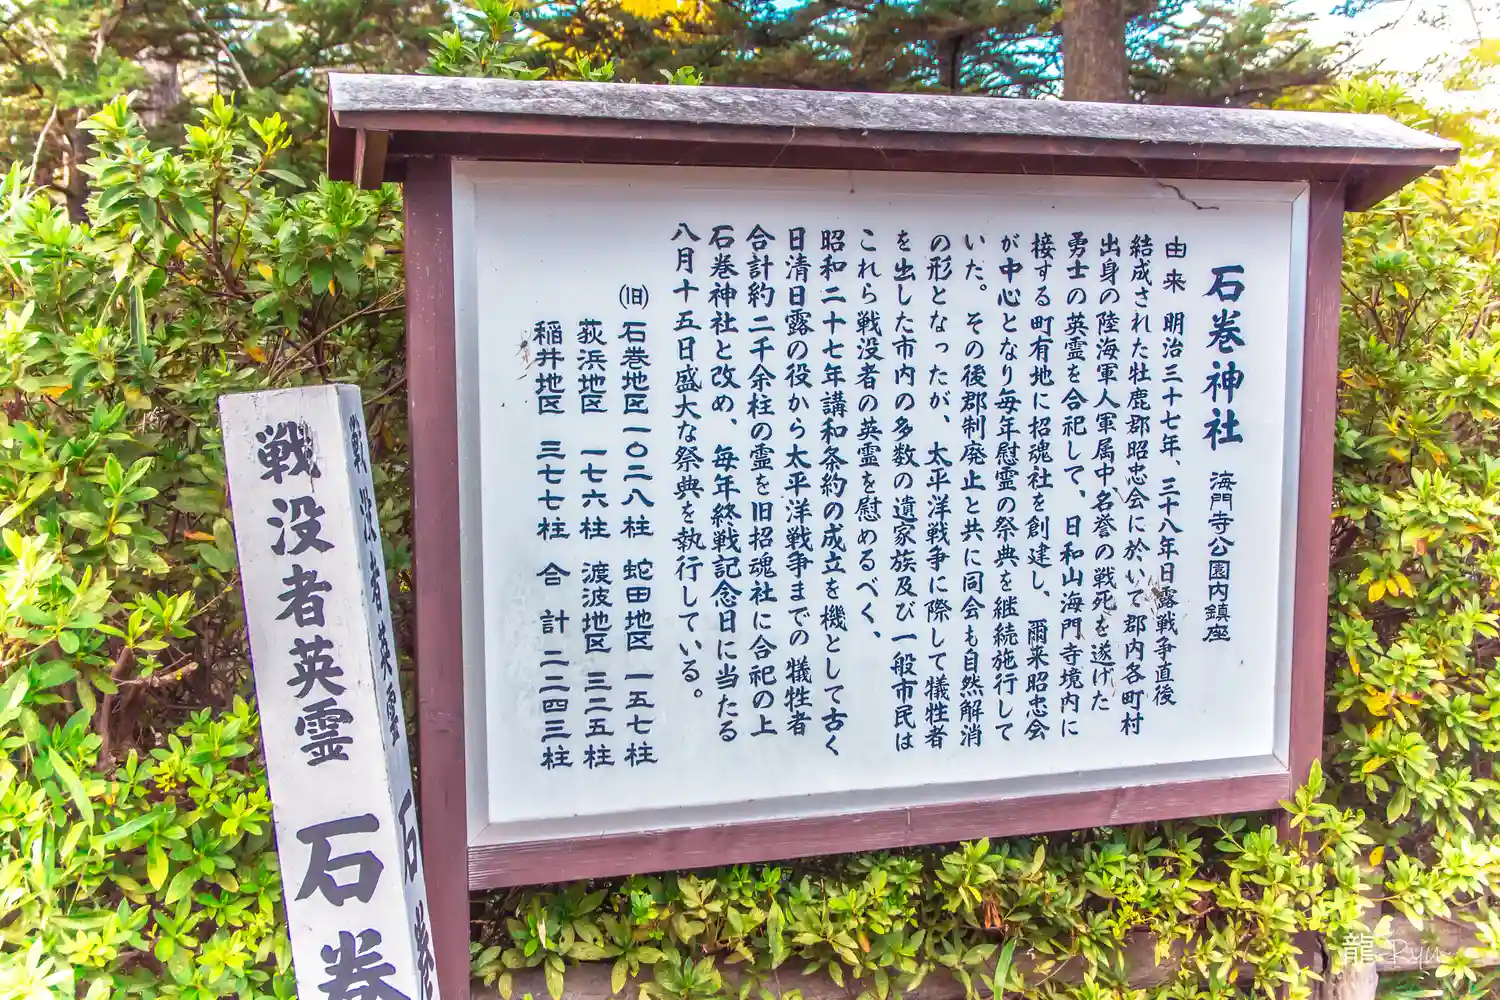 石巻神社 海門寺公園内鎮座
由来 明治三十七年、三十八年日露戦争直後
結成された牡鹿郡昭忠会に於いて郡内各町村
出身の陸海軍人軍属中、名誉の戦死を遂げた
勇士の英霊を合祀して、日和山海門寺境内に
接する町有地に招魂社を創建し、爾来昭忠会
が中心となり毎年慰霊の祭典を継続施行して
いた。その後郡制廃止と共に同会も自然解消
の形となったが、太平洋戦争に際して犠牲者
を出した市内の多数の遺家族及び一般市民は
これら戦没者の英霊を慰めるべく、
昭和二十七年講和条約の成立を機として古く
日清日露の役から太平洋戦争までの犠牲者
合計約二千余柱の霊を旧招魂社に合祀の上
石巻神社と改め、毎年終戦記念日に当たる
八月十五日盛大な祭典を執行している。
(旧)石巻地区一〇二八柱 蛇田地区 一五七柱
荻浜地区 一七六柱 渡波地区 三二五柱
稲井地区 三七七柱 合計 二二四三柱
戦没者英霊 石巻
戦没者英霊 石巻
龍 Ryu